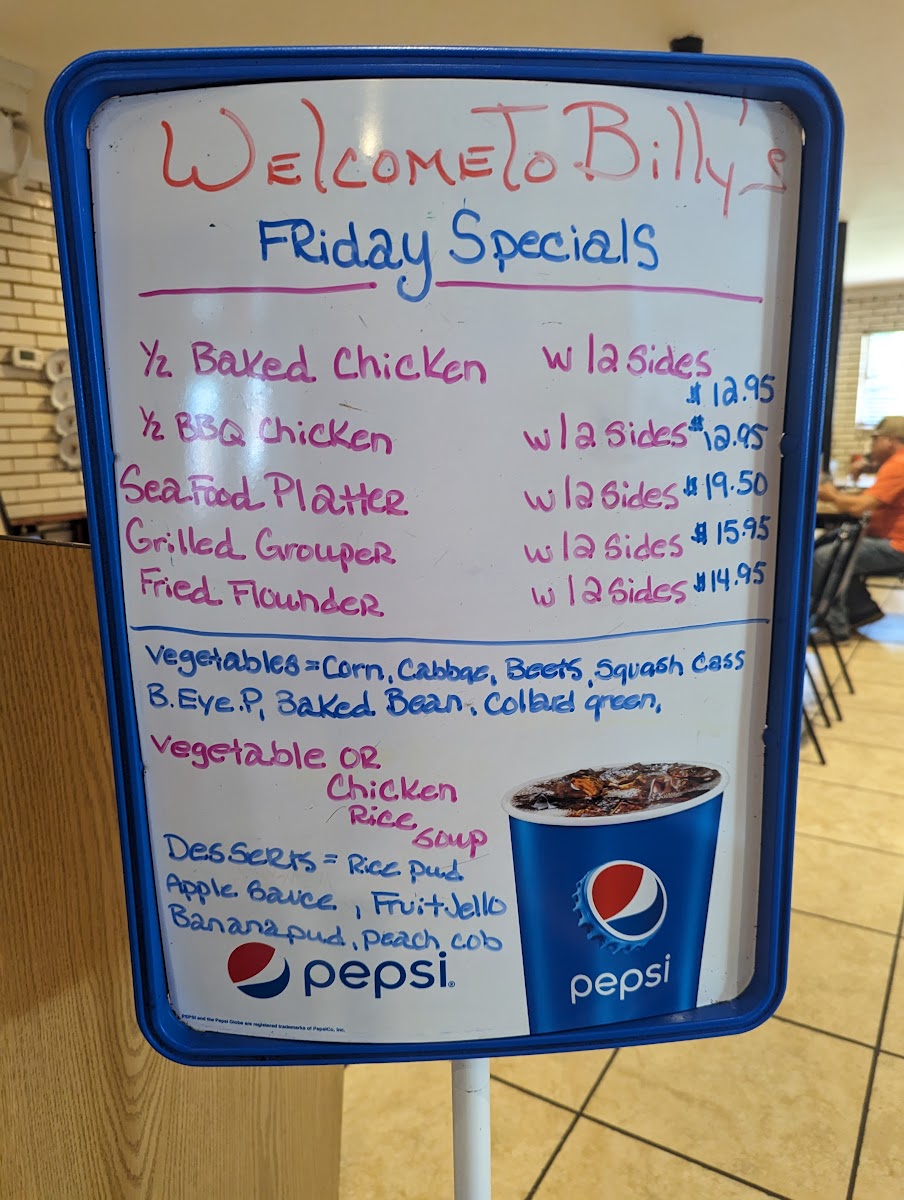 Welcome To Billy's
Friday Specials
1/2 Baked Chicken w/2 sides $12.95
1/2 BBQ Chicken w/2 sides $12.95
SeaFood Platter w/2 sides $19.50
Grilled Grouper w/2 sides $15.95
Fried Flounder w/2 sides $14.95
Vegetables = Corn, Cabbge, Beets, Squash Cass
B.Eye.P, Baked Bean, Collard green,
Vegetable OR
Chicken
Rice
Soup
Desserts = Rice pud
Apple Sauce, Fruit Jello
Banana pud, peach cob
pepsi®
pepsi
PEPSI and the Pepsi Globe are registered trademarks of PepsiCo, Inc.